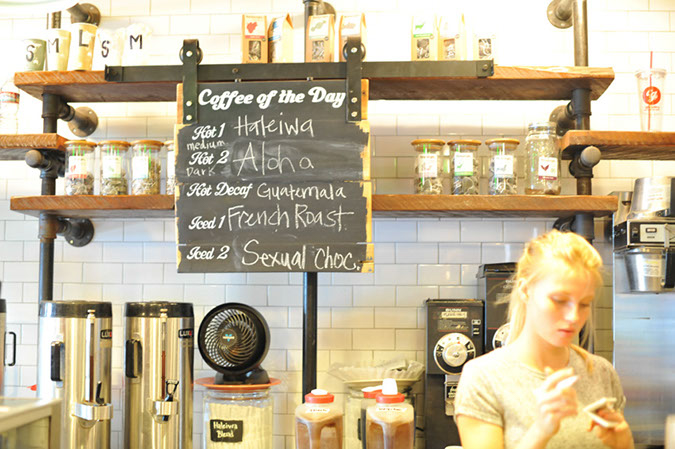 S M L S M
Coffee of the Day
Hot 1 Haleiwa
medium
Hot 2 Aloha
Dark
Hot Decaf Guatemala
Iced 1 French Roast
Iced 2 Sexual Choc.
BUNN
Haleiwa
Blend